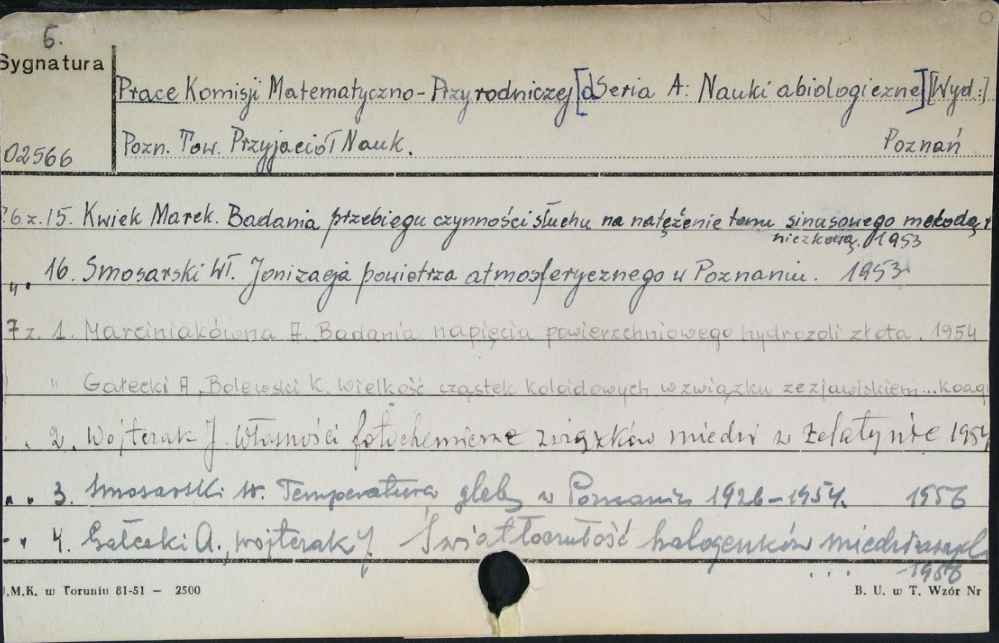 5.
Sygnatura
Prace Komisji Matematyczno-Przyrodniczej [Seria A: Nauki abiologiczne] [Wyd:]
02566 Pozn. Tow. Przyjaciół Nauk. Poznań
6 z. 15. Kwiek Marek. Badania przebiegu czynności słuchu na natężenie tonu sinusowego metodą
niczkową. 1953
„ 16. Smosarski Wł. Jonizacja powietrza atmosferycznego w Poznaniu. 1953
7 z. 1. Marciniakówna A. Badania napięcia powierzchniowego hydrozoli złota. 1954
" Gałecki A, Bolewski K. Wielkość cząstek koloidowych w związku ze zjawiskiem...koag
„ 2. Wojterak J. Własności fotochemiczne związków miedzi w żelatynie 1954
„ „ 3. Smosarski W. Temperatura gleby w Poznaniu 1926-1954. 1956
„ „ 4. Gałecki A., Wojterak J. Światłoczułość halogenków miedziawych
... 1956
U.M.K. w Toruniu 81-51 — 2500 B. U. w T. Wzór Nr